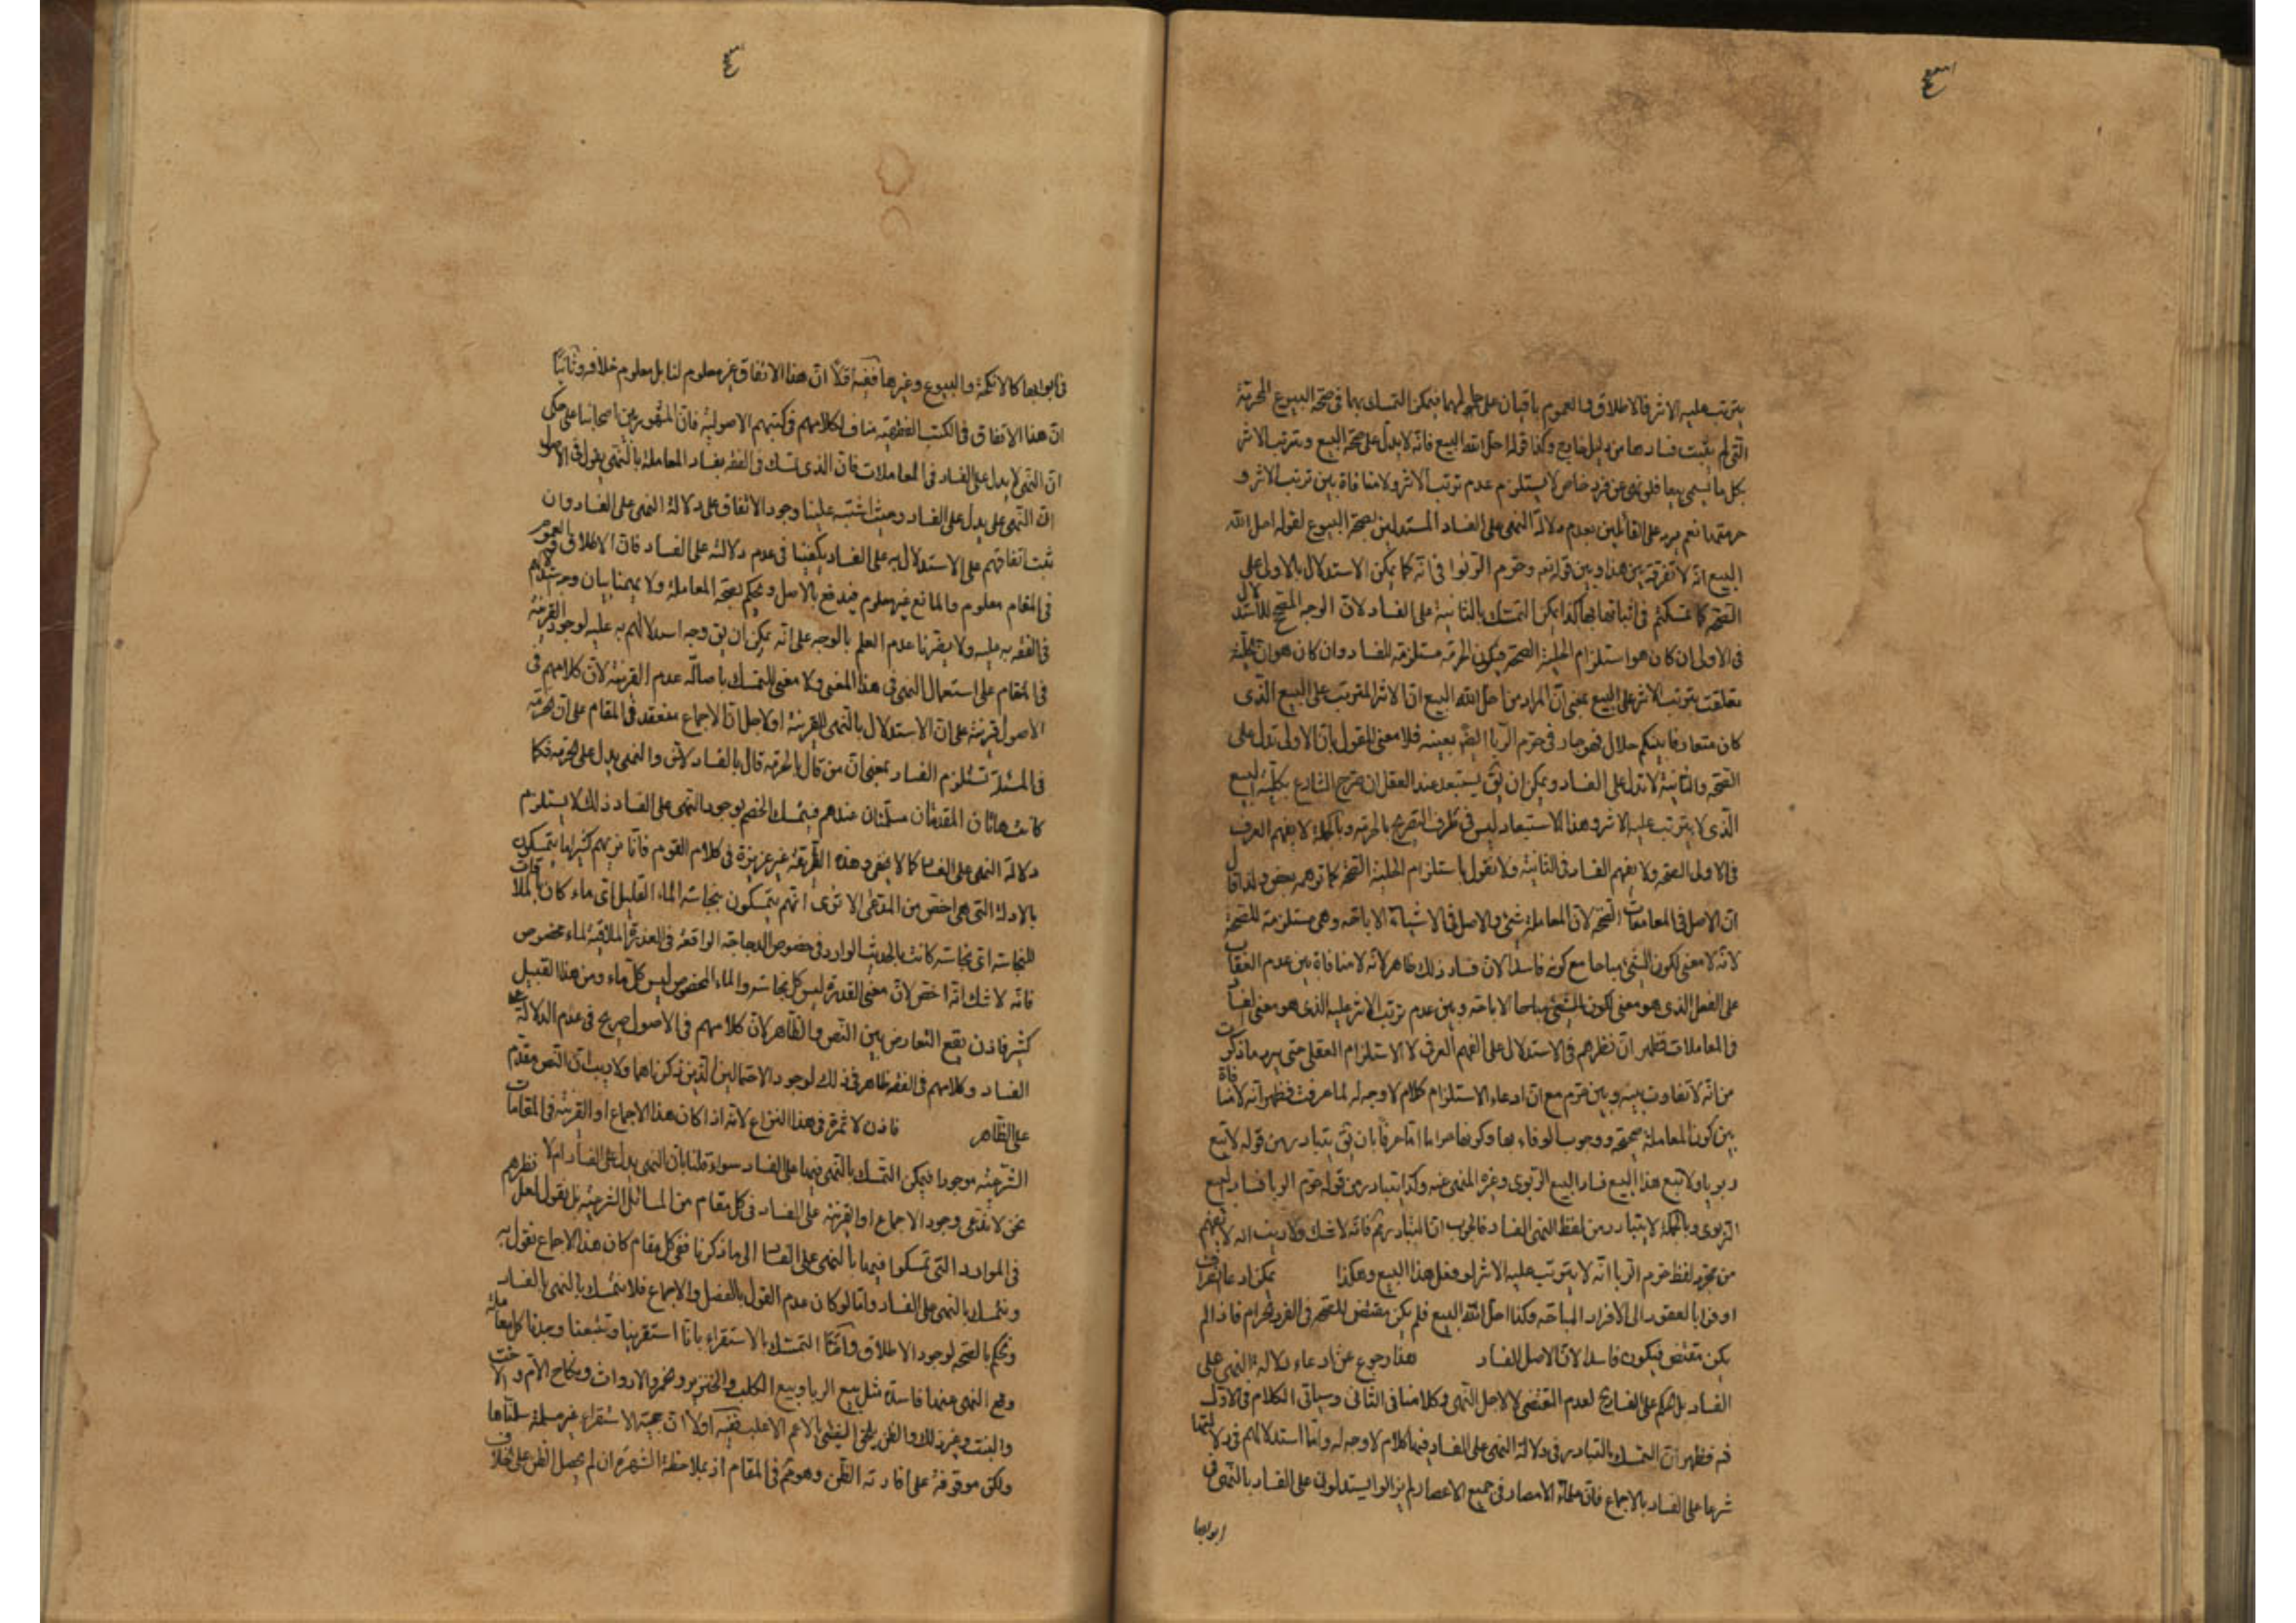 يترتب عليه الاثر فالاطلاق والعموم باقيان على حالهما فيمكن التمسك بهما في صحة البيوع المحرمة
التى لم يثبت فسادها من دليل خارج وكذا قوله احل الله البيع فانه لا يدل على صحة البيع وترتب الاثر
بكل ما يسمى بيعا فلو نهى عن فرد خاص لا يستلزم عدم ترتب الاثر ولا منافاة بين ترتب الاثر و
حرمتها نعم يرد على القائلين بعدم دلالة النهى على الفساد المستدلين بصحة البيوع لقوله احل الله
البيع انه لا تفرقة بين هذا وبين قوله تعه وحرم الربوا فى انه كما يمكن الاستدلال بالاول على
الصحة كما تمسكتم فى اثباتها بها كذا يمكن التمسك بالثانية على الفساد لان الوجه المصحح للاستدلال
فى الاول ان كان هو استلزام الحلية الصحة فيكون الحرمة مستلزمة للفساد وان كان هو ان الحلية
تعلقت بترتب الاثر على البيع بمعنى ان المراد من احل الله البيع ان الاثر المترتب على البيع الذى
كان متعارفا بينكم حلال فهو جار فى حرم الربا ايضا بعينه فلا معنى للقول بان الاولى تدل على
الصحة والثانية لا تدل على الفساد ويمكن ان يق يستبعد عند العقل ان صرح الشارع بحلية البيع
الذى لا يترتب عليه الاثر وهذا الاستبعاد ليس فى طرف التصريح بالحرمة وبالجملة لا يفهم العرف
فى الاولى الصحة ولا يفهم الفساد فى الثانية ولا نقول باستلزام الحلية الصحة كما توهمه بعض ولذا قال
ان الاصل فى المعاملات الصحة لان المعاملة شئ والاصل فى الاشياء الاباحة وهى مستلزمة للصحة
لانه لا معنى لكون الشئ مباحا مع كونه فاسدا لان فساد ذلك ظاهر لانه لا منافاة بين عدم العقاب
على الفعل الذى هو معنى لكون الشئ مباحا الاباحة وبين عدم ترتب الاثر عليه الذى هو معنى لفساد
والمعاملات فظهر ان نظرهم فى الاستدلال على الفهم العرفى لا الاستلزام العقلى حتى يرد ما ذكرت
من انه لا تفاوت بينه وبين حرم مع ان ادعاء الاستلزام كلام لا وجه له لما عرفت فظهر انه لا منافاة
بين كون المعاملة صحيحة ووجوب الوفاء بها وكونها حراما اما عرفا بان يق يتبادر من قوله لا تبع
ربويا ولا تبع هذا البيع فساد البيع الربوى وغيره المنهى عنه وكذا يتبادر من قوله حرم الربا فساد البيع
الربوى وبالجملة لا يتبادر من لفظ النهى الفساد فالجواب ان التبادر مم فانه لا شك ولا ريب انه لا يفهم
من مجرد لفظ حرم الربا انه لا يترتب عليه الاثر لو فعل هذا البيع وهكذا يمكن ادعا انصراف
اوفوا بالعقود الى الافراد المباحة وكذا احل الله البيع فلم يكن مقتض للصحة فى الفرد الحرام فاذا لم
يكن مقتض فيكون فاسدا لان الاصل الفساد هذا رجوع عن ادعاء دلالة النهى على
الفساد بل الحكم على الفساد ح لعدم المقتضى لا لاجل النهى وكلامنا فى الثانى وسياتى الكلام فى الاول
فظهر ان التمسك بالتبادر فى دلالة النهى على الفساد فيها كلام لا وجه له واما استدلالهم فى دلالتها
شرعا على الفساد بالاجماع فان علماء الامصار فى جميع الاعصار لم يزالوا يستدلون على الفساد بالنهى فى
ابوابها
فى ابوابها كالانكحة والبيوع وغيرها ففيه اولا ان هذا الاتفاق غير معلوم لنا بل معلوم خلافه وثانيا
ان هذا الاتفاق فى الكتب الفقهية مناف لكلامهم فى كتبهم الاصولية فان المشهور بين اصحابنا على ما حكى
ان النهى لا يدل على الفساد فى المعاملات فان الذى تمسك فى الفقه بفساد المعاملة بالنهى يقول فى الاصول
ان النهى على يدل على الفساد وحيث اشتبه علينا وجود الاتفاق على دلالة النهى على الفساد وان
ثبت اتفاقهم على الاستدلال به على الفساد يكفينا فى عدم دلالته على الفساد فان الاطلاق والعموم
فى المقام معلوم والمانع غير معلوم فيدفع بالاصل ونحكم بصحة المعاملة ولا يهمنا بيان وجه تمسكهم
فى الفقه به عليه ولا يضرنا عدم العلم بالوجه على انه يمكن ان يق وجه استدلالهم به عليه لوجود القرينة
فى المقام على استعمال النهى فى هذا المعنى ولا معنى للتمسك باصالة عدم القرينة لان كلامهم فى
الاصول قرينة على ان الاستدلال بالنهى للقرينة او لاجل ان الاجماع منعقد فى المقام على ان الحرمة
فى المسئلة تستلزم الفساد بمعنى ان من قال بالحرمة قال بالفساد لا ش والنهى يدل على الحرمة فكما
كانت هاتان المقدمتان مسلمتان عندهم فيتمسك الخصم بوجود النهى على الفساد ذلك لا يستلزم
دلالة النهى على الفساد كما لا يخفى وهذه الطريقة غير عزيزة فى كلام القوم فانا نريهم كثيرا ما يتمسكون
بالادلة التى هى اخص من المدعى الا ترى انهم يتمسكون بنجاسة الماء القليل اى ماء كان بملاقات
للنجاسة اى نجاسة كانت بالحديث الوارد فى خصوص الدجاجة الواقعة فى العذرة الملاقية لماء مخصوص
فانه لا شك انه اخص لان معنى القذرة ليس كل نجاسة والماء المخصوص ليس كل ماء ومن هذا القبيل
كثير فاذن يقع التعارض بين النص والظاهر لان كلامهم فى الاصول صريح فى عدم الدلالة على
الفساد وكلامهم فى الفقه ظاهر فى ذلك لوجود الاحتمالين الذين ذكرناهما ولا ريب ان النص مقدم
على الظاهر فاذن لا ثمرة فى هذا النزاع لانه اذا كان هذا الاجماع او القرينة فى المقامات
الشرعية موجودا فيمكن التمسك بالنهى فيها على الفساد سواء قلنا بان النهى يدل على الفساد ام لا
نحن لا ندعى وجود الاجماع او القرينة على الفساد فى كل مقام من المسائل الشرعية بل نقول لعل نظرهم
فى الموارد التى تمسكوا فيها بالنهى على الفساد الى ما ذكرنا ففى كل مقام كان هذا الاجماع نقول به
ونتمسك بالنهى على الفساد واما لو كان عدم القول بالفصل والاجماع فلا نتمسك بالنهى بالفساد
ونحكم بالصحة لوجود الاطلاق واما التمسك بالاستقراء بانا استقرينا وتتبعنا وجدنا كل معاملة
وقع النهى عنها فاسدة مثل بيع الربا وبيع الكلب والخنزير والخمر والارواث ونكاح الام والاخت
والبنت وغير ذلك والظن يلحق الشئ بالاعم الاغلب ففيه اولا ان حجية الاستقراء غير مسلمة سلمناها
ولكن موقوفة على افادته الظن وهو مم فى المقام اذ بملاحظة الشهرة ان لم يحصل الظن على خلاف